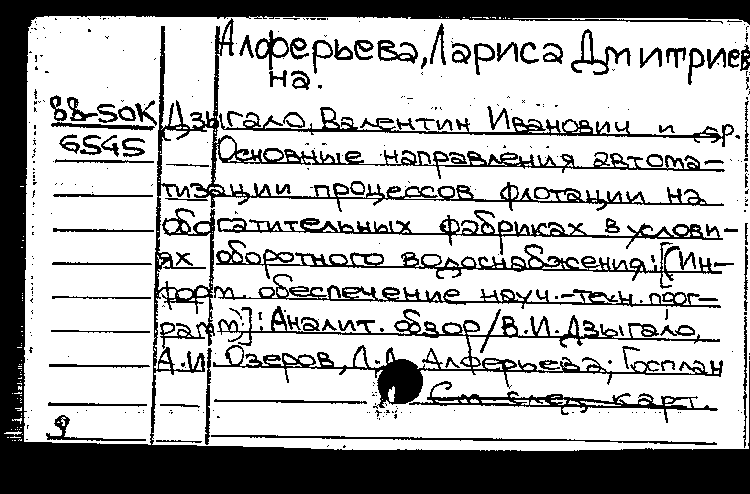 Алферьева, Лариса Дмитриев
на.
88-50К Дзыгало, Валентин Иванович и др.
6545 Основные направления автома-
тизации процессов флотации на
обогатительных фабриках в услови-
ях оборотного водоснабжения: [(Ин-
форм. обеспечение науч.-техн. прог-
рамм)]: Аналит. обзор / В.И. Дзыгало,
А.И. Озеров, Л.Д. Алферьева; Госплан
См след. карт.
9